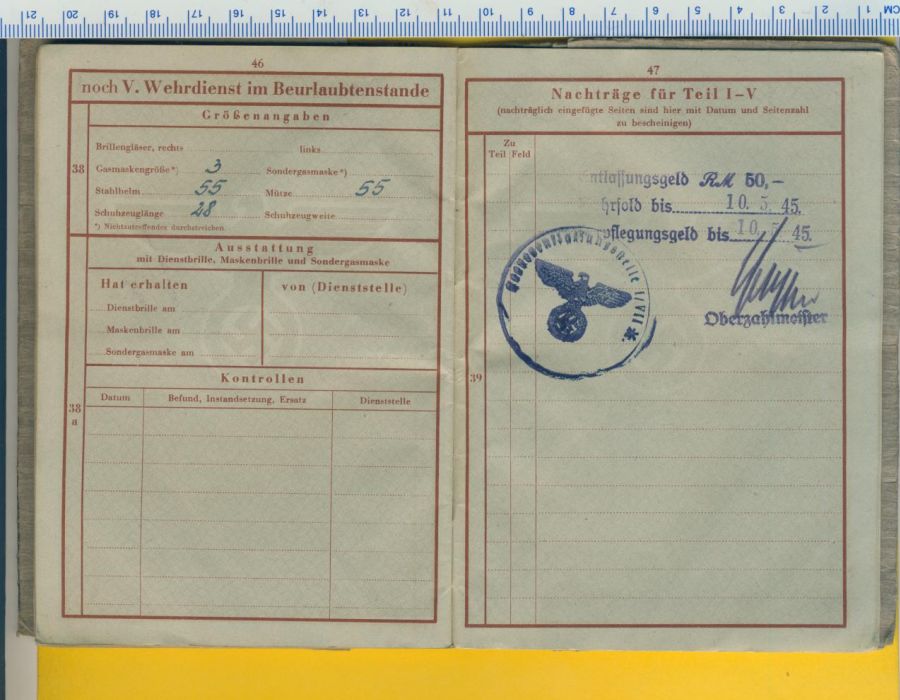 CM 1 2 3 4 5 6 7 8 9 10 11 12 13 14 15 16 17 18 19 20 21
46
noch V. Wehrdienst im Beurlaubtenstande
Größenangaben
38
Brillengläser, rechts links
Gasmaskengröße*) 3 Sondergasmaske*)
Stahlhelm 55 Mütze 55
Schuhzeuglänge 28 Schuhzeugweite
*) Nichtzutreffendes durchstreichen.
Ausstattung
mit Dienstbrille, Maskenbrille und Sondergasmaske
Hat erhalten von (Dienststelle)
Dienstbrille am
Maskenbrille am
Sondergasmaske am
Kontrollen
38 a
Datum Befund, Instandsetzung, Ersatz Dienststelle
47
Nachträge für Teil I–V
(nachträglich eingefügte Seiten sind hier mit Datum und Seitenzahl
zu bescheinigen)
Zu
Teil Feld
39
ntlassungsgeld RM 50,–
hrsold bis 10. 5. 45.
pflegungsgeld bis 10. 5. 45.
Oberzahlmeister